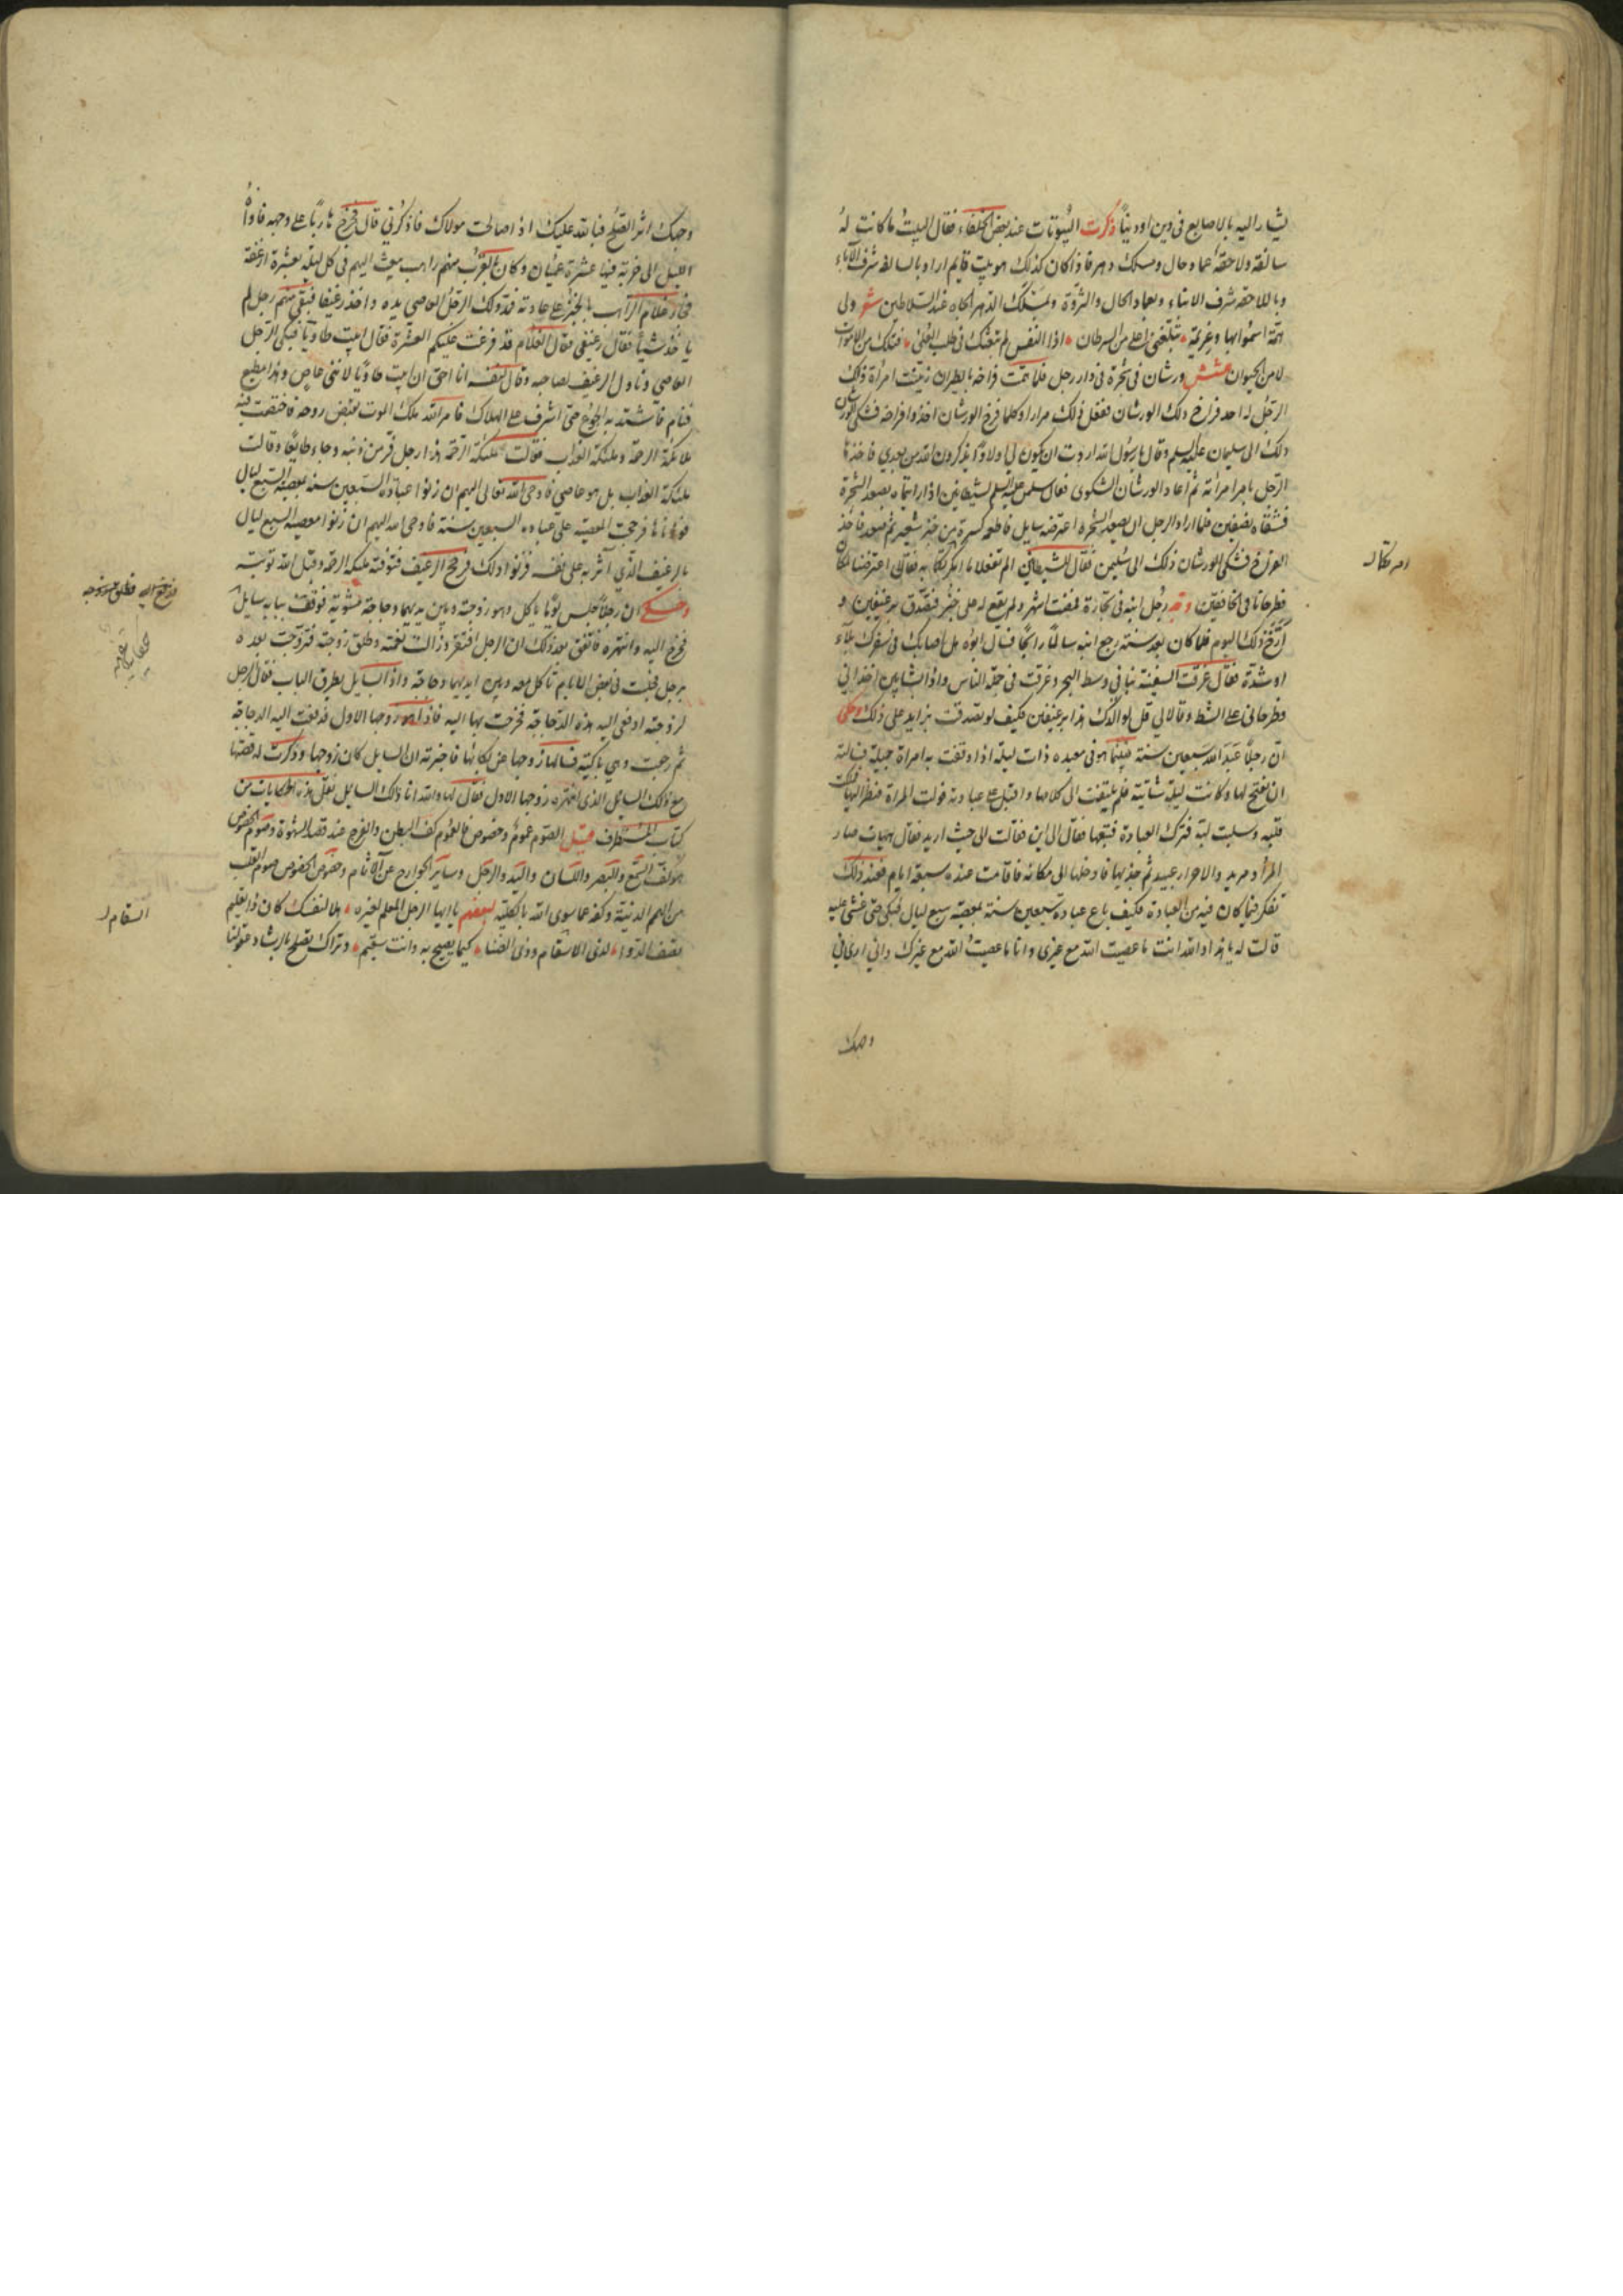 يشار اليه بالاصابع فى دين او دنيا ذكرت البيوتات عند بعض الخلفاء فقال البيت ما كانت له
سالفة ولاحقة وعماد حال ومسك دهر فاذا كان كذلك فهو بيت قايم اراد بالسالفة شرف الآباء
وباللاحقة شرف الابناء وبعماد الحال والثروة وبمسك الدهر الجاه عند السلاطين شعر ولى
همة اسمو بها وعزيمة تبلغنى اعلى من السرطان اذا النفس لم تبغك فى طلب العلى فتلك من الاموات
لا من الحيوان عشش ورشان فى شجرة فى دار رجل فلما همت فراخه بالطيران زينت امراة ذلك
الرجل له اخذ فراخ ذلك الورشان ففعل ذلك مرارا وكلما فرخ الورشان اخذوا فراخه فشكى الورشان
ذلك الى سليمان عليه السلم وقال يا رسول الله اردت ان يكون لى اولاد يذكرون الله من بعدي فاخذها
الرجل بامر امراته ثم اعاد الورشان الشكوى فقال سليمن عليه السلم لشيطانين اذا رايتماه يصعد الشجرة
فشقاه نصفين فلما اراد الرجل ان يصعد الشجرة اعترضه سايل فاطعمه كسرة من خبز شعير ثم صعد فاخذ
الفراخ فشكى الورشان ذلك الى سليمن فقال للشيطانين الم تفعلا ما امرتكما به فقالا اعترضنا ملكان
فطرحانا فى الخافقين وجه رجل ابنه فى تجارة فمضت اشهر ولم يقع له على خبر فتصدق برغيفين و
ارخ ذلك اليوم فلما كان بعد سنة رجع ابنه سالما رابحا فسأل ابوه هل اصابك فى سفرك بلاء
او شدة فقال غرقت السفينة بنا فى وسط البحر وغرقت فى جملة الناس واذا بشابين اخذانى
وطرحانى على الشط وقالا لى قل لوالدك هذا برغيفين فكيف لو تصدقت بزايد على ذلك وحكى
ان رجلا عبد الله سبعين سنة فبينما هو فى معبده ذات ليلة اذا وقفت به امراة جميلة فسالته
ان يفتح لها وكانت ليلة شاتية فلم يلتفت الى كلامها واقبل على عبادته فولت المراة فنظر اليها فملكت
قلبه وسلبت لبه فترك العبادة فتبعها فقال الى اين فقالت الى حيث اريد فقال هيهات صار
المراد مريد والاحرار عبيد ثم جذبها فادخلها الى مكانه فاقامت عنده سبعة ايام فعند ذلك
تفكر فيما كان فيه من العبادة فكيف باع عبادة سبعين سنة بمعصية سبع ليال فبكى حتى غشى عليه
قالت له يا هذا والله انت ما عصيت الله مع غيرى وانا ما عصيت الله مع غيرك وانى ارى فى
امرتكما له
وجهك
وجهك اثر الصلح فبالله عليك اذا صالحت مولاك فاذكرنى قال فخرج هاربا على وجهه فاواه
الليل الى خربة فيها عشرة عميان وكان بالقرب منهم راهب يبعث اليهم فى كل ليلة بعشرة ارغفة
فجاء غلام الراهب بالخبز على عادته فمد ذلك الرجل العاصى يده واخذ رغيفا فبقى منهم رجل لم
ياخذ شيئا فقال رغيفى فقال الغلام قد فرغت عليكم العشرة فقال ابيت طاويا فبكى الرجل
العاصى وناول الرغيف لصاحبه وقال لنفسه انا احق ان ابيت طاويا لاننى عاص وهذا مطيع
فنام فاشتد به الجوع حتى اشرف على الهلاك فامر الله ملك الموت بقبض روحه فاختصمت فيه
ملائكة الرحمة وملئكة العذاب فقالت ملئكة الرحمة هذا رجل فر من ذنبه وجاء طايعا وقالت
ملئكة العذاب بل هو عاصى فاوحى الله تعالى اليهم ان زنوا عبادة السبعين سنة بمعصية السبع ليال
فوزناها فرجحت المعصية على عبادة السبعين سنة فاوحى الله اليهم ان زنوا معصية السبع ليال
بالرغيف الذى آثر به على نفسه فوزنوا ذلك فرجح الرغيف فتوفته ملئكة الرحمة وقبل الله توبته
وحكى ان رجلا جلس يوما ياكل وهو وزوجته وبين يديهما دجاجة مشوية فوقف ببابه سايل
فخرج اليه وانتهره فاتفق بعد ذلك ان الرجل افتقر وزالت نعمته وطلق زوجته فتزوجت بعده
برجل فجلست فى بعض الايام تاكل معه وبين ايديهما دجاجة واذا بسايل يطرق الباب فقال الرجل
لزوجته ادفعى اليه هذه الدجاجة فخرجت بها اليه فاذا هو زوجها الاول فدفعت اليه الدجاجة
ثم رجعت وهى باكية فسالها زوجها عن بكائها فاخبرته ان السايل كان زوجها وذكرت له قصتها
مع ذلك السايل الذى انتهره زوجها الاول فقال لها والله انا ذلك السايل نقل هذه الحكايات من
كتاب المستطرف قيل الصوم عموم وخصوص فالعموم كف البطن والفرج عند قصد الشهوة وصوم الخصوص
هو كف السمع والبصر واللسان واليد والرجل وساير الجوارح عن الآثام وخصوص الخصوص صوم القلب
من الهمم الدنية وكفه عما سوى الله بالكلية لبعضهم يا ايها الرجل المعلم غيره هلا لنفسك كان ذا التعليم
تصف الدواء لذى الاسقام وذى الضنا كيما يصح به وانت سقيم ونراك تصلح بالرشاد عقولنا
حكاية غريبة
السقام